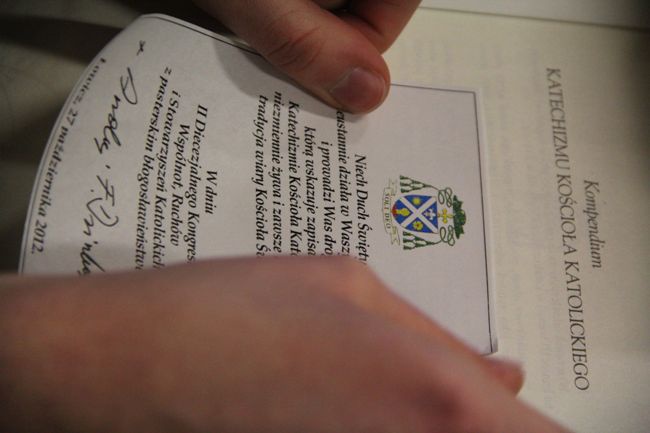 Kompendium
KATECHIZMU KOŚCIOŁA KATOLICKIEGO
SOLI DEO
Niech Duch Święty
eustannie działa w Wasz
i prowadzi Was dro
którą wskazuje zapisa
Katechizmie Kościoła Kat
niezmiennie żywa i zawsze
tradycja wiary Kościoła Św
W dniu
II Diecezjalnego Kongres
Wspólnot, Ruchów
i Stowarzyszeń Katolickich
z pasterskim błogosławieństwe
Łowicz, 27 października 2012